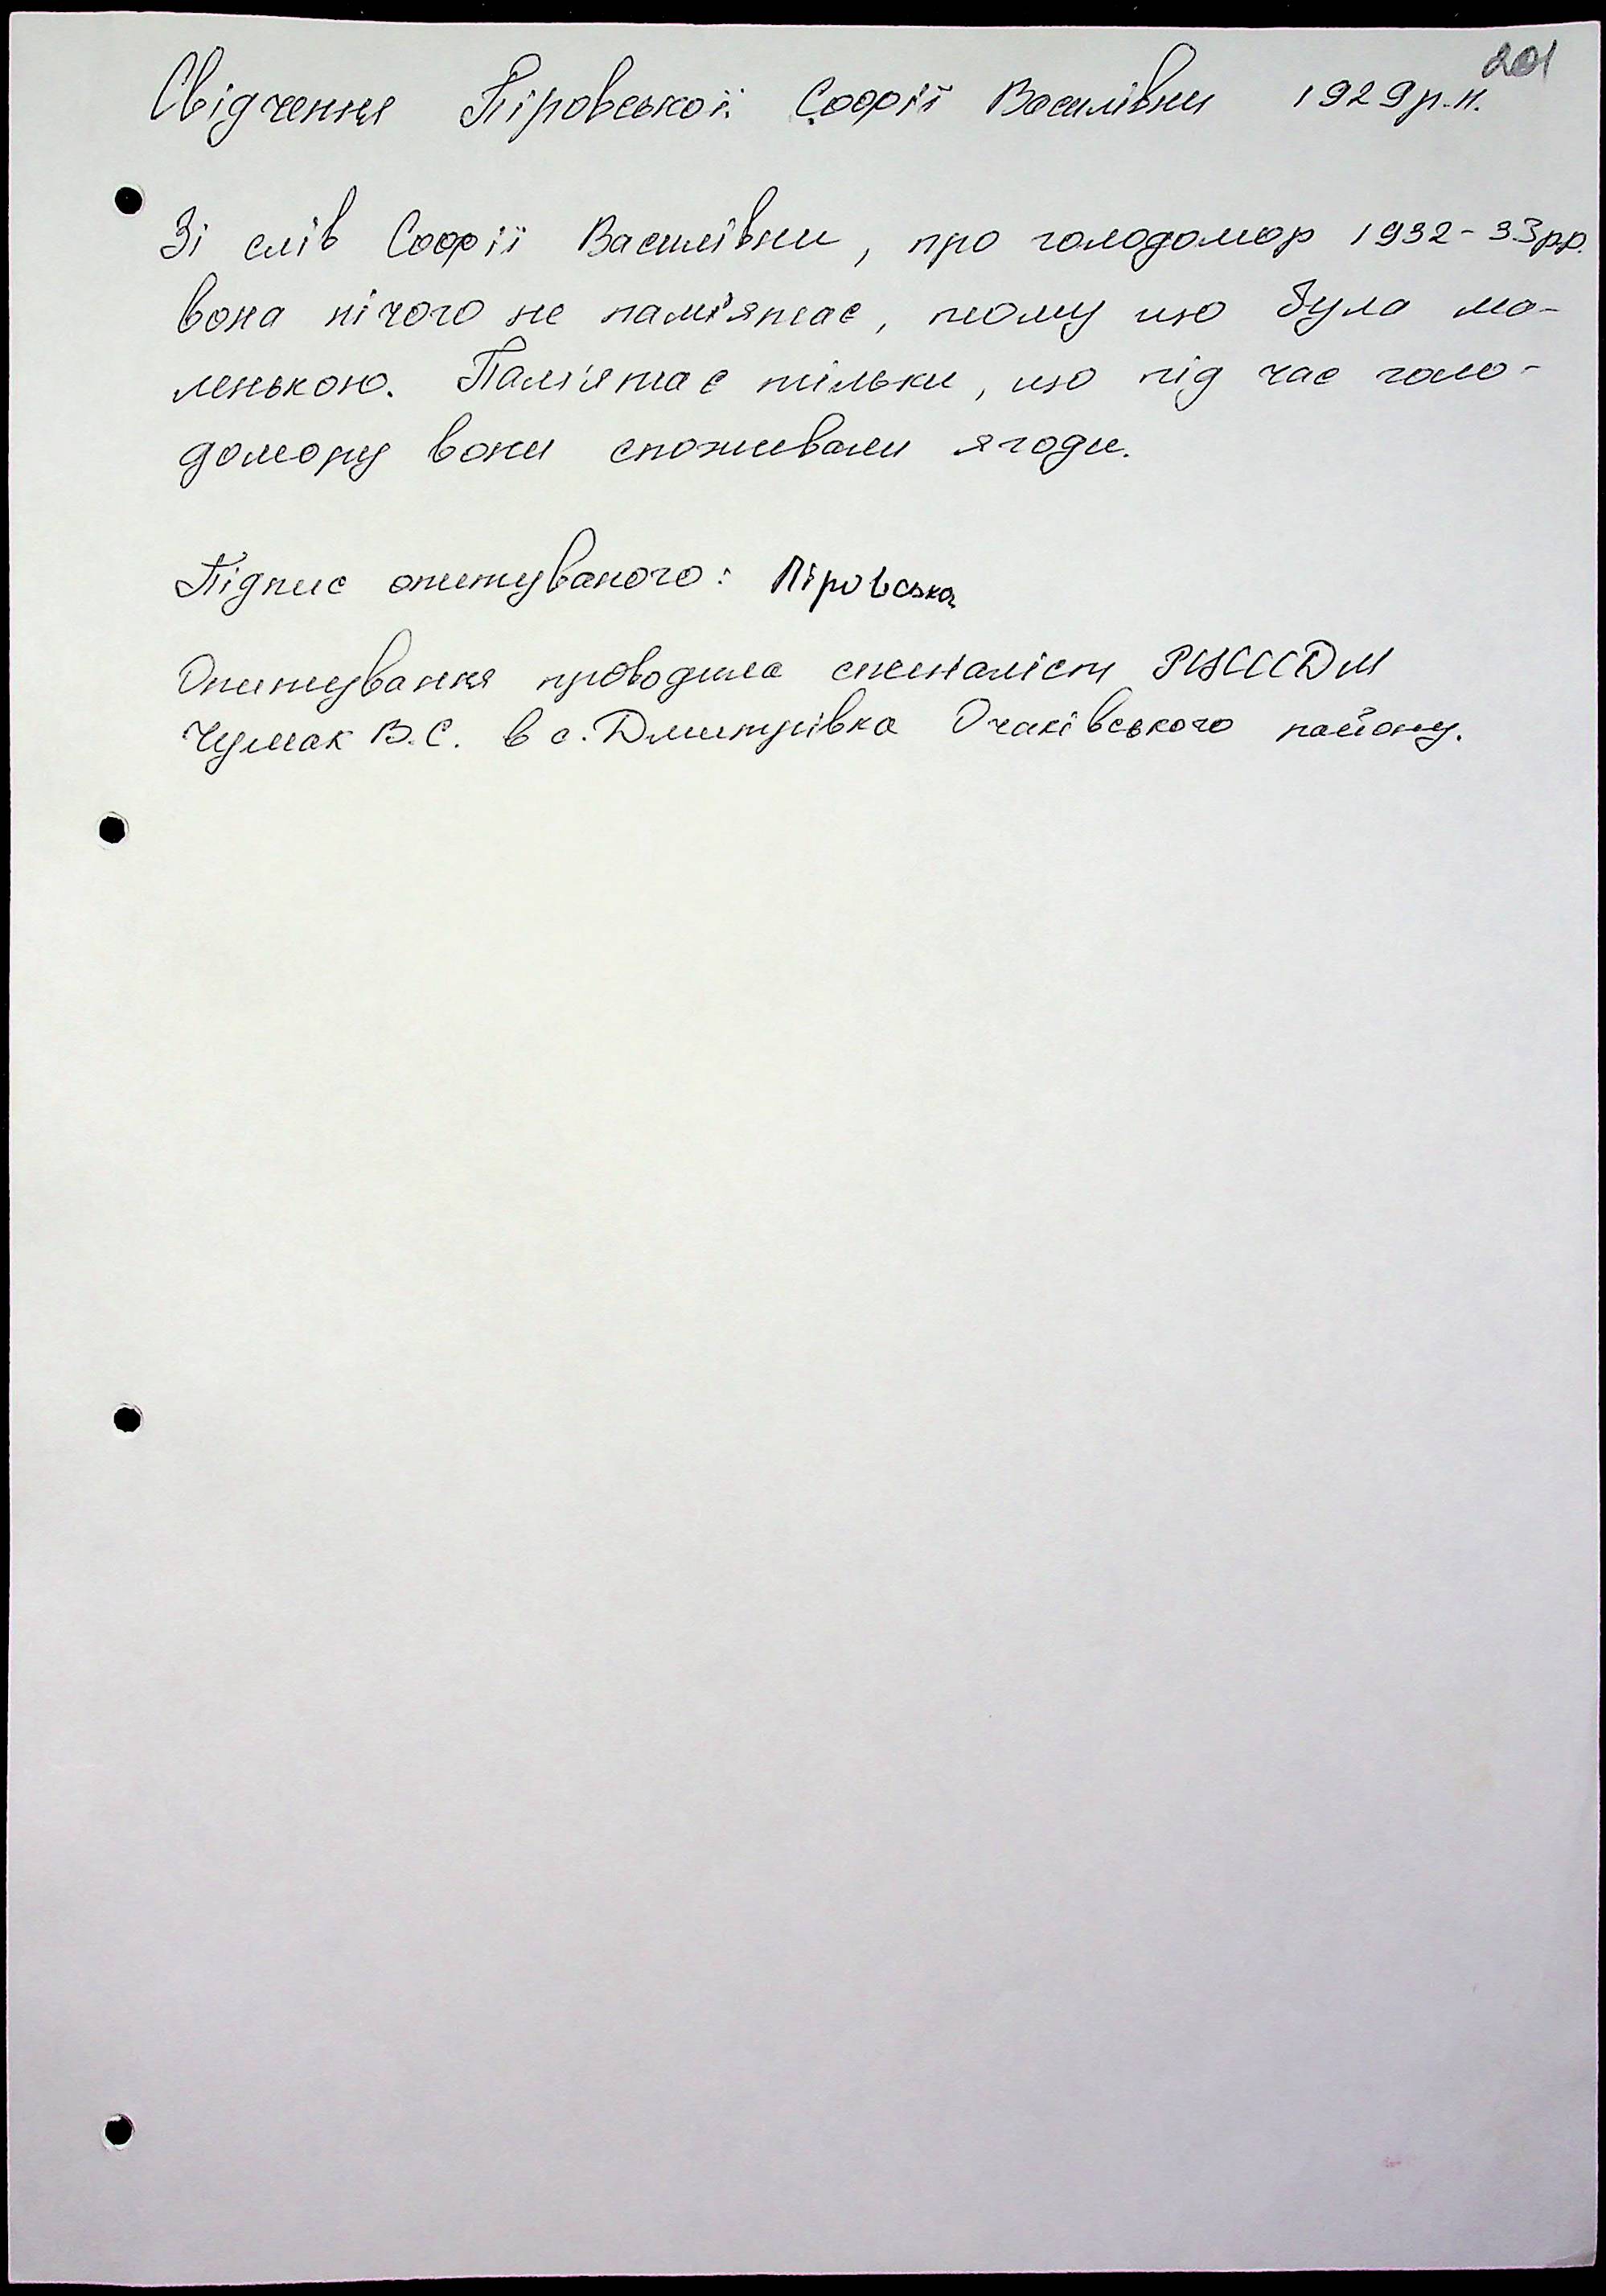 201
Свідчення Піровської Софії Василівни 1929р.н.
Зі слів Софії Василівни, про голодомор 1932-33рр.
вона нічого не пам'ятає, тому що була ма-
ленькою. Пам'ятає тільки, що під час голо-
домору вони споживали ягоди.
Підпис опитуваного: Піровська
Опитування проводила спеціаліст РЦСССДМ
Чумак В.С. в с. Дмитрівка Очаківського району.